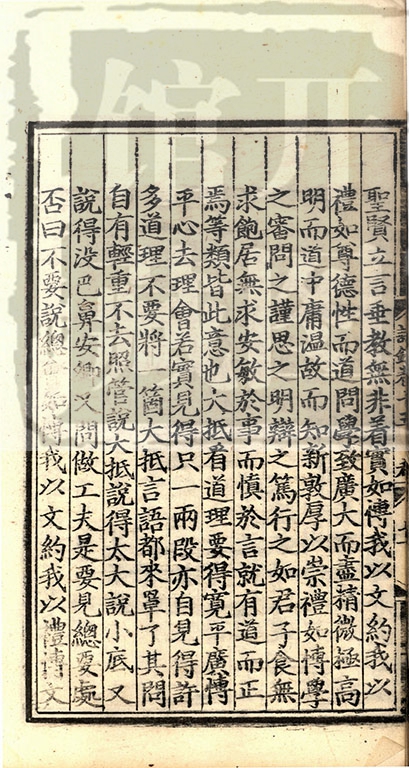 聖賢立言垂教無非着實如博我以文約我以
禮如尊德性而道問學致廣大而盡精微極高
明而道中庸温故而知新敦厚以崇禮如博學
之審問之謹思之明辯之篤行之如君子食無
求飽居無求安敏於事而慎於言就有道而正
焉等類皆此意也大抵看道理要得寛平廣博
平心去理會若實見得只一兩段亦自見得許
多道理不要將一箇大抵言語都來罩了其間
自有輕重不去照管說大抵說得太大說小底又
說得没巴鼻安卿又問做工夫是要見總要處
否曰不要說總會如博我以文約我以禮博文